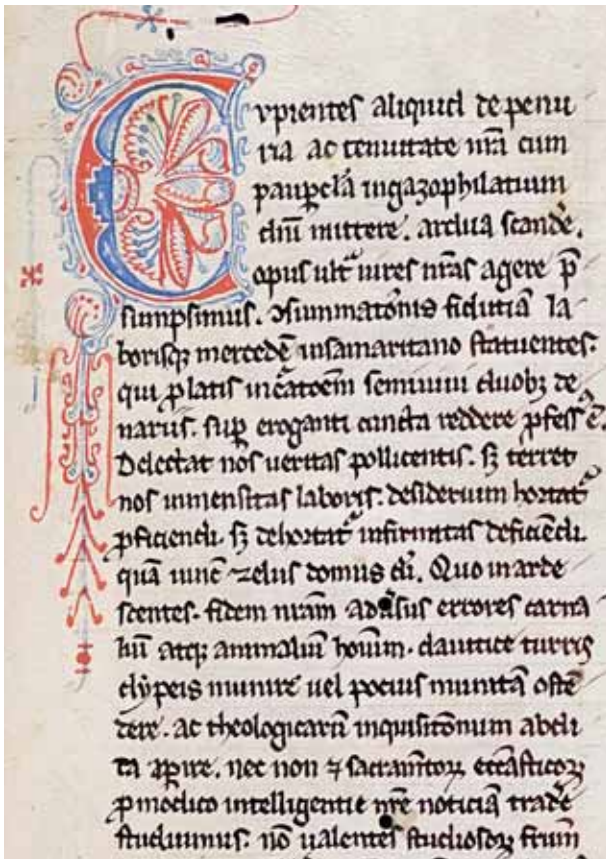 Cupientes aliquid de penu
ria ac tenuitate nr̃a cum
paup̲c̃la ingazophilatium
dñi mittere. ardua scand̾e.
opus ultᵃ uires nr̃as agere p̄
sumpsimus. ꝯsummatõnis fidutiã la
borisqꝫ mercedẽ insamaritano statuentes.
qui ꝓlatis incᵃatõem semiuiui duobꝫ de
narijs. sup̲ eroganti cuncta reddere ꝓfessꝰ ẽ.
Delectat nos ueritas pollicentis. sꝫ terret
nos inmensitas laboris. desiderium hortatᷣ
ꝓficiendi. sꝫ dehortatᷣ infirmitas deficiẽdi.
quã uinc̃ zelus domus di̾. Quo inarde
scentes. fidem nr̃am adũsus errores carna
liũ atqꝫ animaliũ hoĩm. dauitice turris
clypeis munire uel pocius munitã ostẽ
dere. ac theologicarũ inquisitõnum abdi
ta ap̲ire. nec non ⁊ sacram̃toꝝ ecc̃asticoꝝ
ꝓ modico intelligentie nr̃e noticiã trad̾e
studuimus. nõ ualentes studiosoꝝ fr̃um